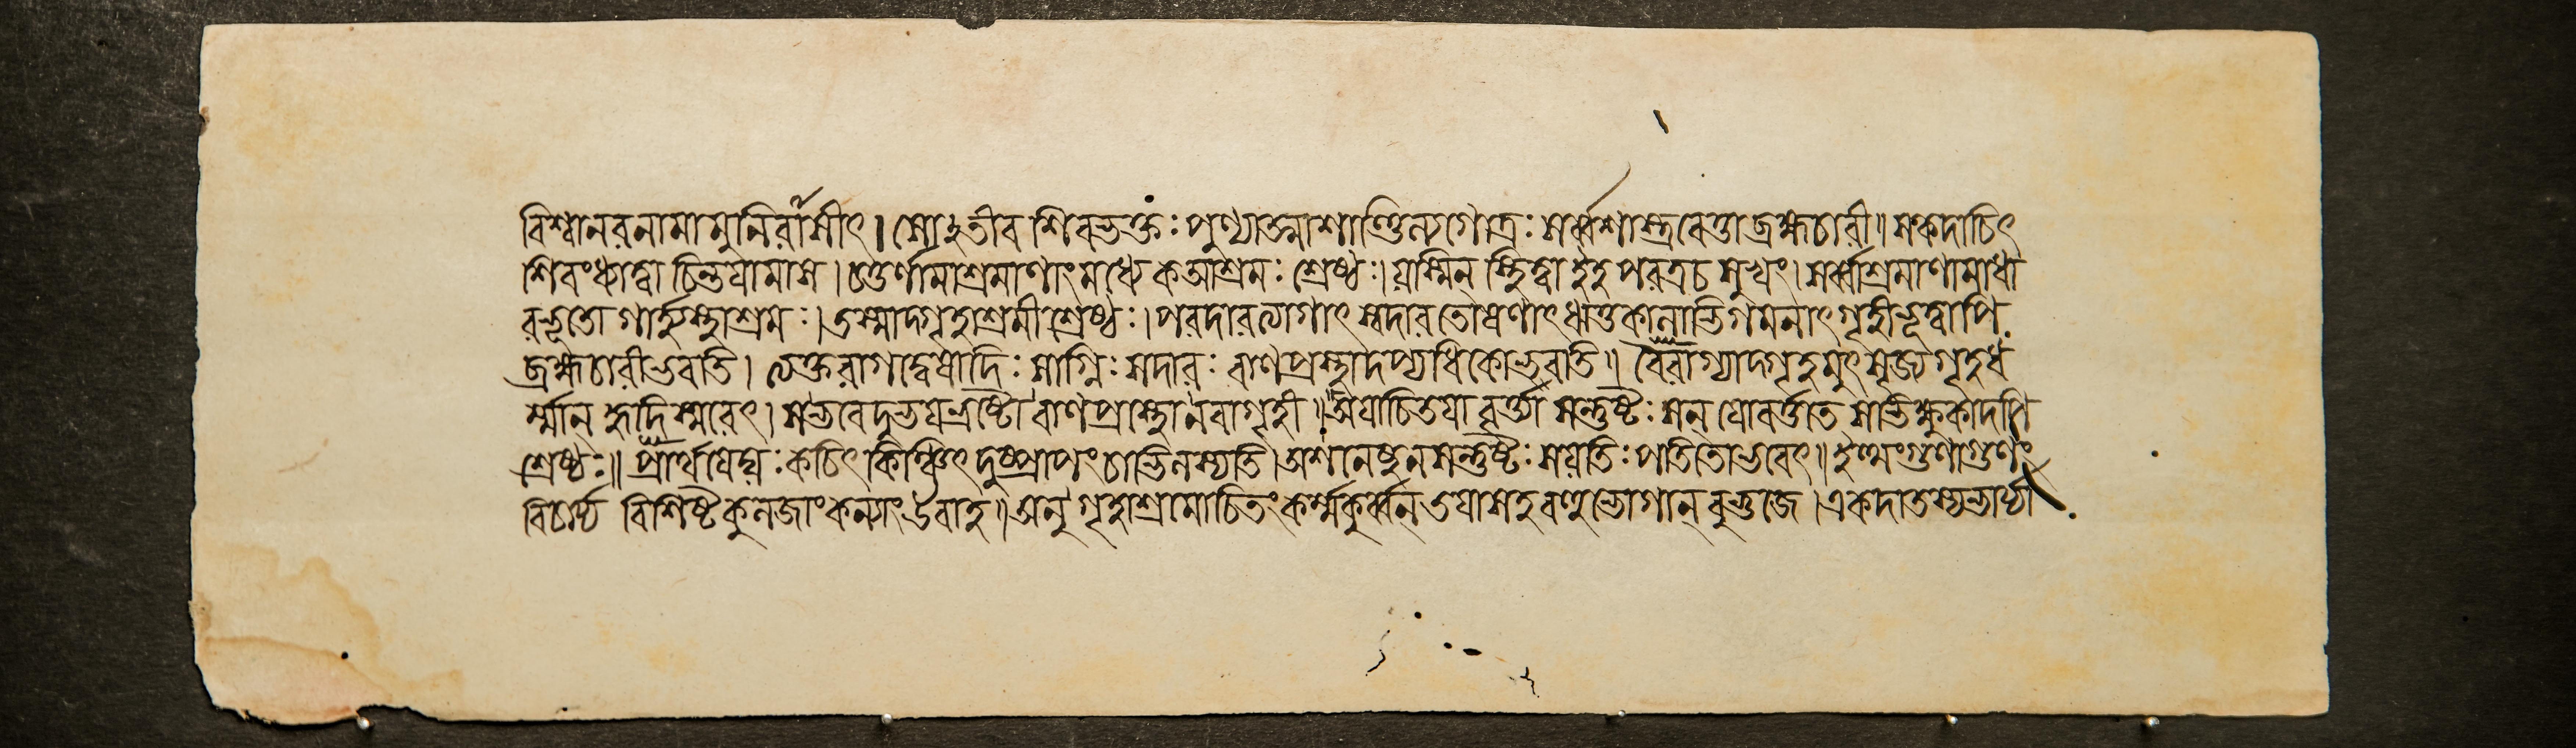 বিশ্বানরনামামুনিরাসীৎ। সোঽতীব শিবভক্তঃ পুণ্যাত্মাশাণ্ডিল্যগোত্রঃ সর্ব্বশাস্ত্রবেত্তাব্রহ্মচারী॥ সকদাচিৎ
শিবংধ্যাত্বা চিন্তয়ামাস। চতুর্ণামাশ্রমাণাংমধ্যে কআশ্রমঃ শ্রেষ্ঠঃ। যস্মিন্ স্থিত্বা ইহ পরত্রচ সুখং। সর্ব্বাশ্রমাণামাধা
রভূতো গার্হস্থ্যাশ্রমঃ। তস্মাদ্গৃহাশ্রমীশ্রেষ্ঠঃ। পরদারত্যাগাৎ স্বদারতোষণাৎ ঋতুকালাভিগমনাৎ গৃহীভূত্বাপি
ব্রহ্মচারীভবতি। ত্যক্তরাগদ্বেষাদিঃ সাগ্নিঃ সদারঃ বাণপ্রস্থাদপ্যধিকোভবতি॥ বৈরাগ্যাদ্গৃহমুৎসৃজ্য গৃহধ
র্ম্মান্ হৃদিস্মরেৎ। সভবেদুভয়ভ্রষ্টো বাণপ্রস্থোনবাগৃহী॥ অযাচিতয়া বৃর্ত্ত্যা সন্তুষ্টঃ সন্ যোবর্ত্ততে সোভিক্ষুকাদপি
শ্রেষ্ঠঃ॥ প্রার্থয়েদ্যঃ কচিৎ কিঞ্চিৎ দুষ্প্রাপং চাভিলস্যতি। অশনেষুনসন্তুষ্টঃ সযতিঃ পতিতোভবেৎ॥ ইত্থংগুণাগুণং
বিচার্য্য বিশিষ্টকুলজাংকন্যাং ঔবাহ॥ অনু গৃহাশ্রামোচিতংকর্ম্মকুর্ব্বন্ তয়াসহ বহুভোগান্ বুভুজে। একদাতস্যভার্য্যা